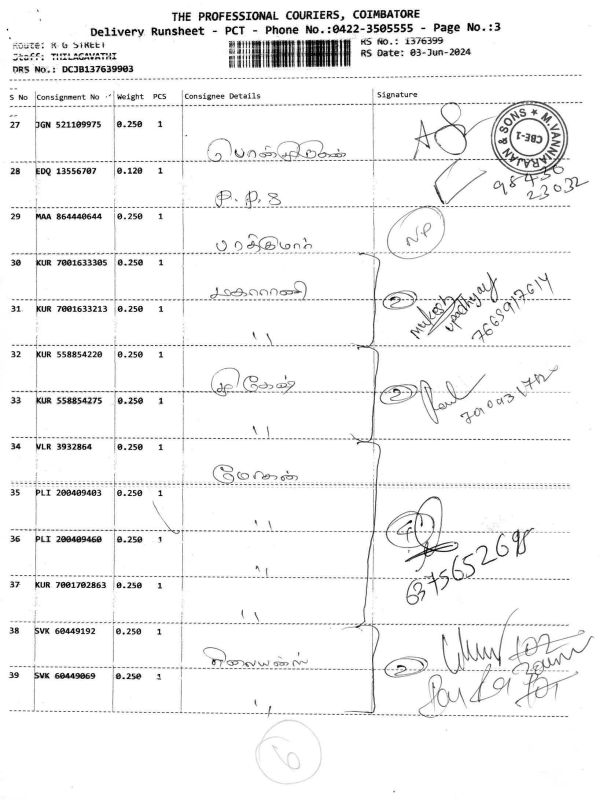 THE PROFESSIONAL COURIERS, COIMBATORE
Delivery Runsheet - PCT - Phone No.:0422-3505555 - Page No.:3
Route: R G STREET
RS No.: 1376399
Staff: THILAGAVATHI
RS Date: 03-Jun-2024
DRS No.: DCJB137639903
S No Consignment No Weight PCS Consignee Details Signature
27 JGN 521109975 0.250 1
M.VANNIARAJAN & SONS CBE-1
28 EDQ 13556707 0.120 1
98430
23032
P.P.S
29 MAA 864440644 0.250 1
NP
30 KUR 7001633305 0.250 1
மகாராணி
2 Mukesh
upadhyay
7668917614
31 KUR 7001633213 0.250 1
"
32 KUR 558854220 0.250 1
33 KUR 558854275 0.250 1
2
"
34 VLR 3932864 0.250 1
மோகன்
35 PLI 200409403 0.250 1
"
4
36 PLI 200409460 0.250 1
"
6375652698
37 KUR 7001702863 0.250 1
"
38 SVK 60449192 0.250 1
2
39 SVK 60449069 0.250 1
"
6